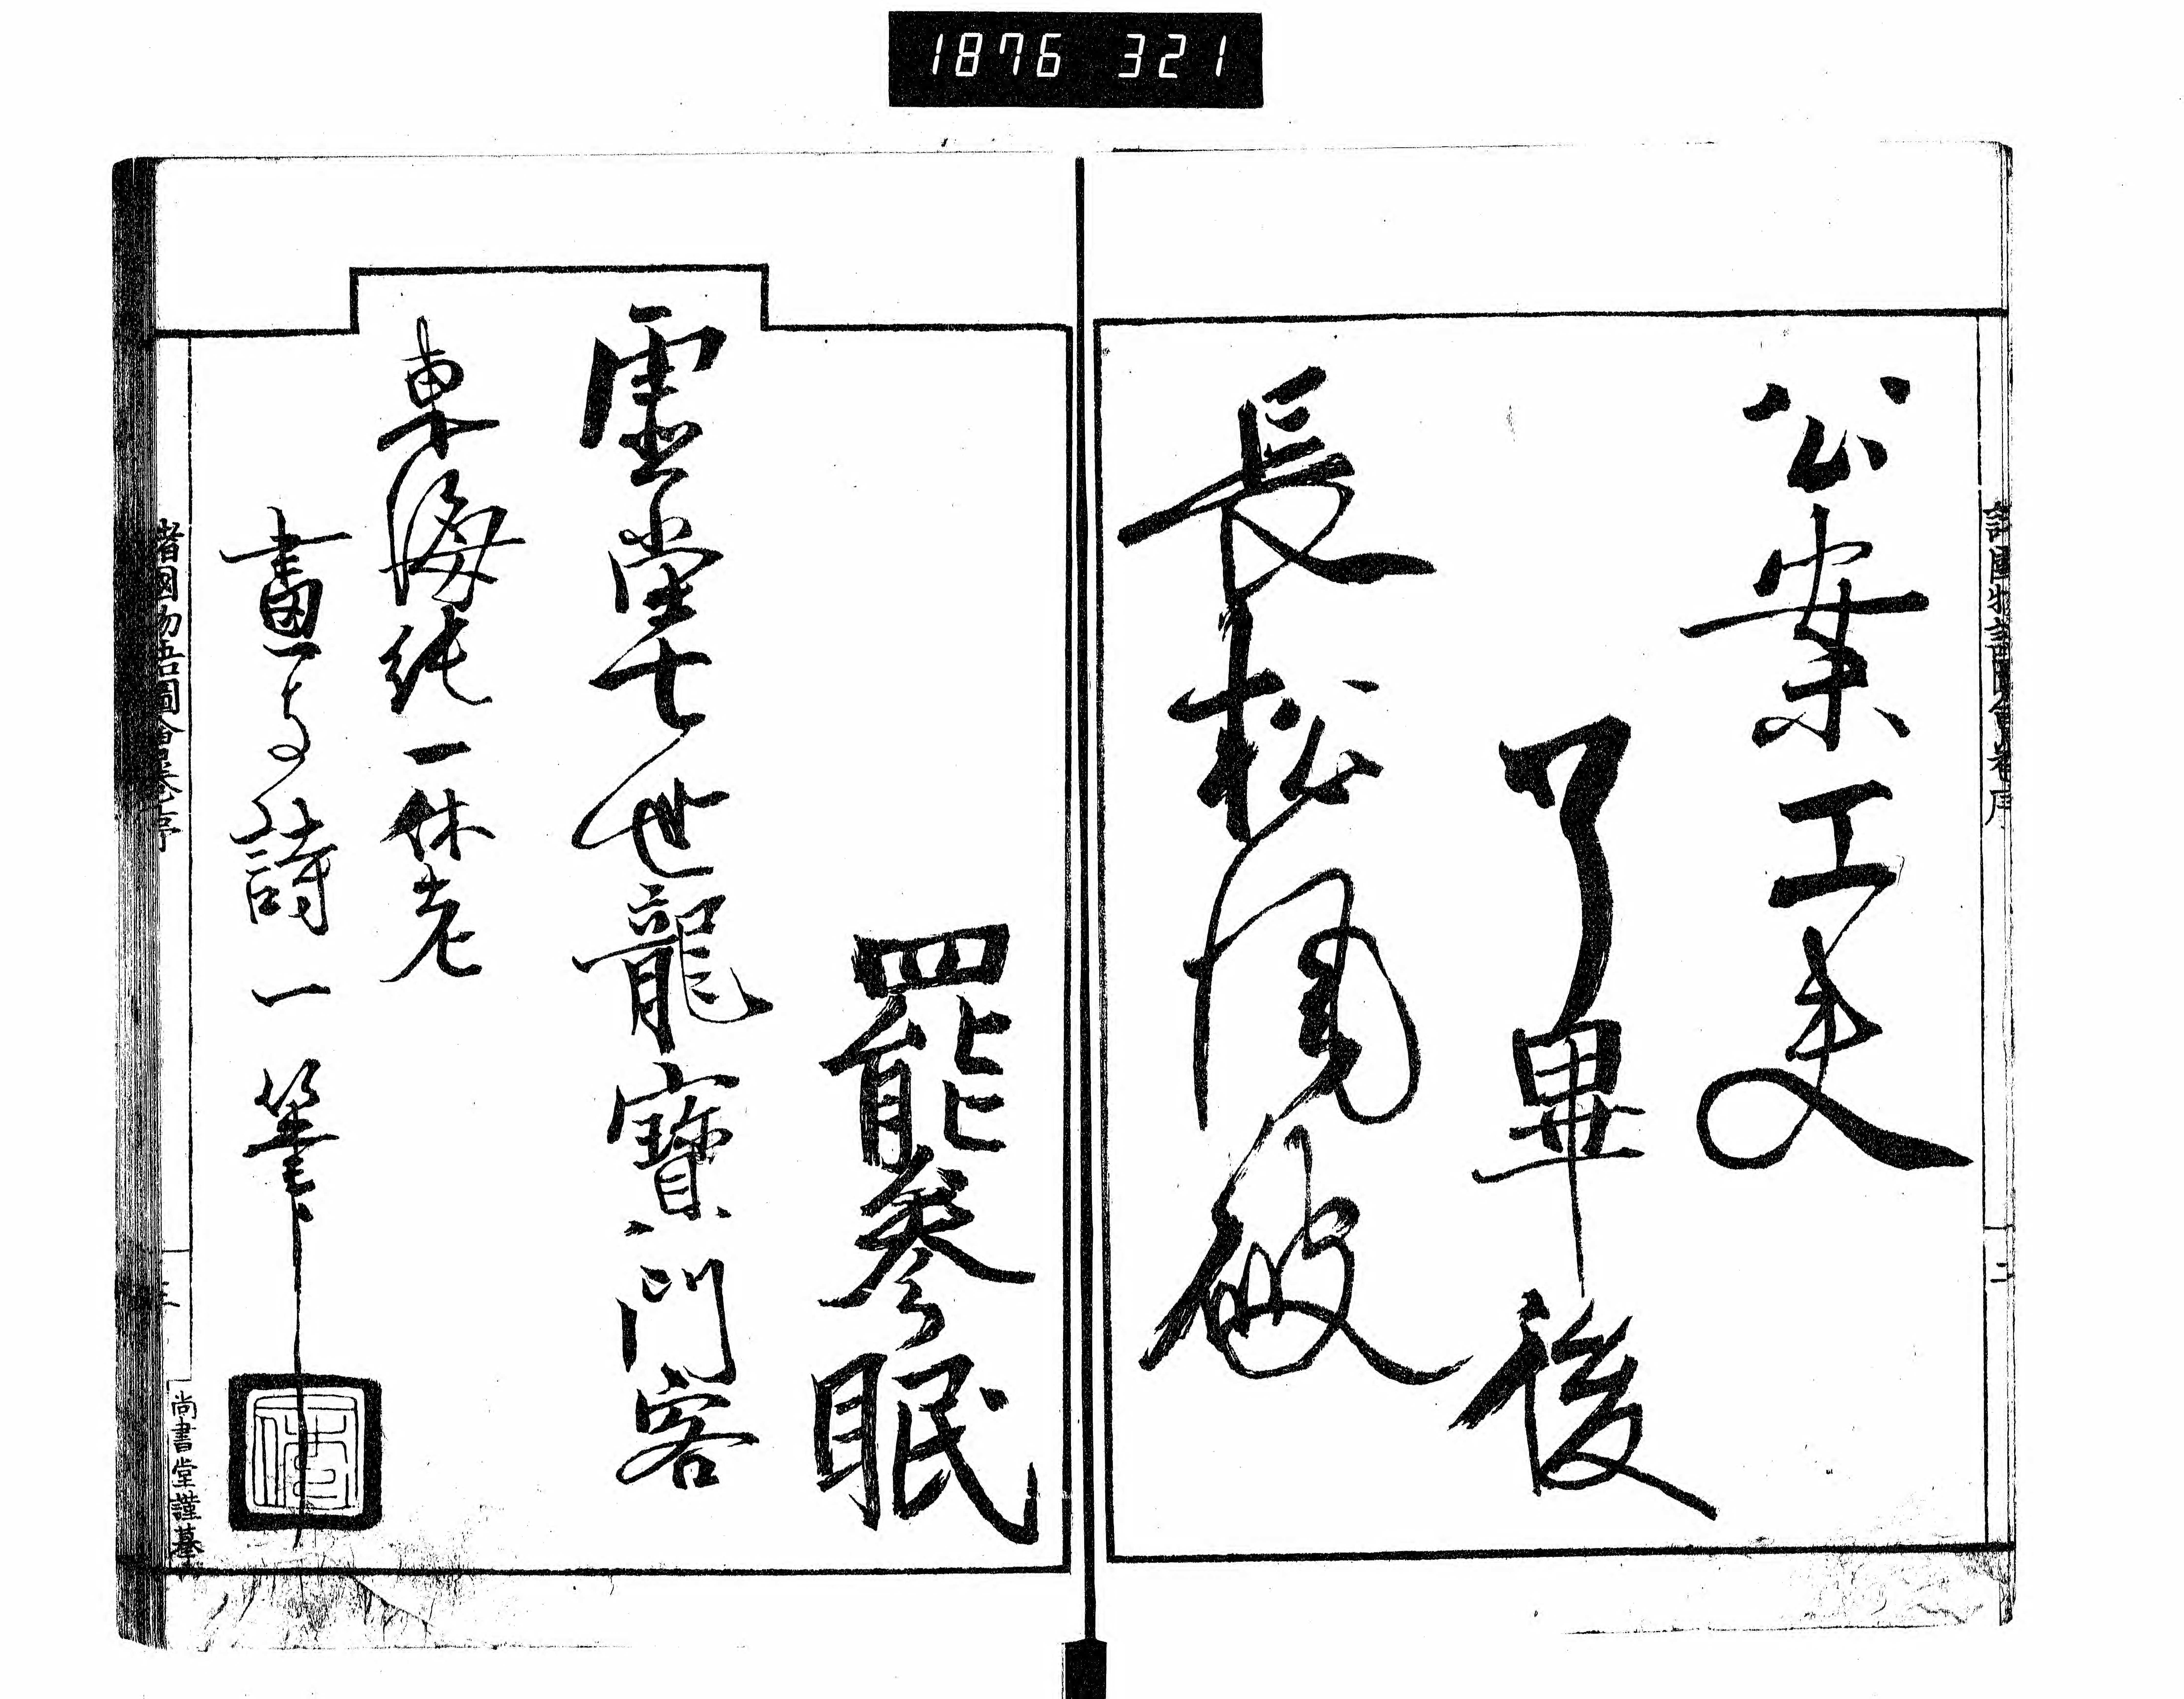 1876 321
公案工夫
了畢後
長松風破
罷參眠
虛堂七世龍寶門客
東海純一休老
畫与詩一筆
諸國物語圖會卷序
二
諸國物語圖會卷序
三
尚書堂謹摹